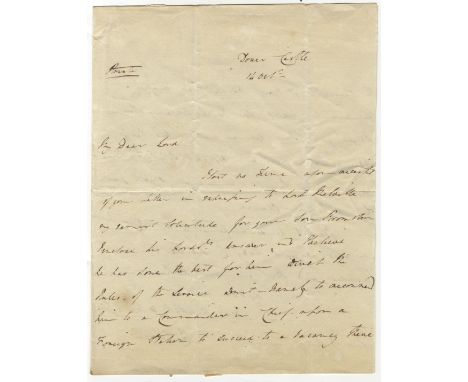 Dover Castle
14 Oct
My Dear Lord
I lost no time upon receipt
of your letter in expressing to Lord Melville
my earnest solicitude for your Son
Enclose his Lord answer, and I believe
he has done the best for him
Rules of the Service to recommend
him to a Commander in Chief upon a
Foreign Station to succeed to a vacancy there